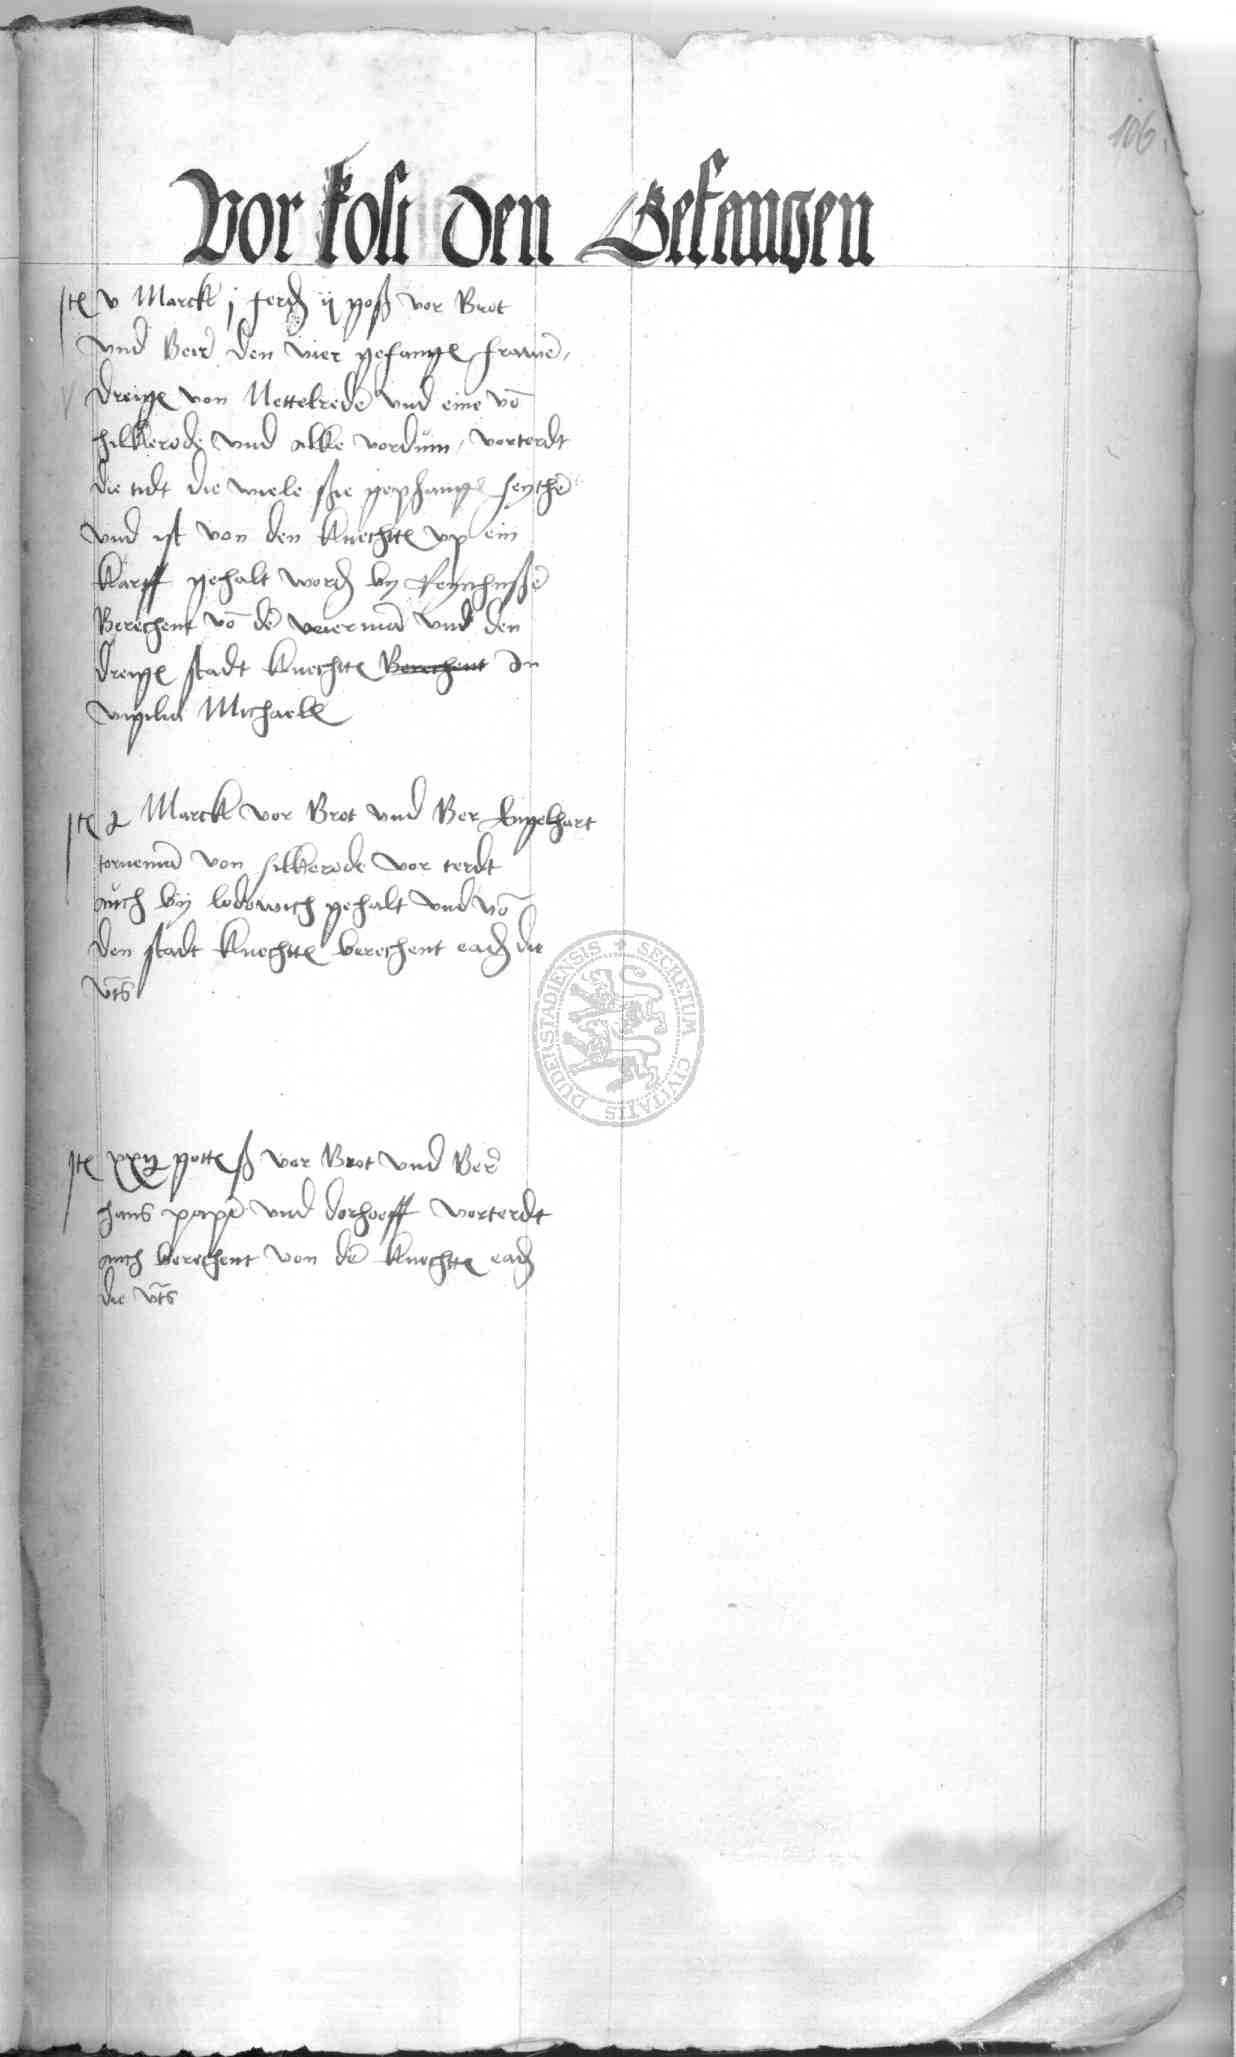 106.
Vor kost den Gefangen
Ite v Marck j ferd ij goß vor Brot
vnd Beir den vier gefange frawe,
dreige von Nettelrede vnd eine vo
hilkerode vnd alke vordum, vorterdt
die tidt die wiele sie gephange seythe
vnd ist von den knechte vp ein
karff gehalt word by
Berechent vo de vierma vnd den
dreige stadt knechte Berechent In
vigilia Michaelis
Ite Marck vor Brot vnd Ber Engelhart
tornema von hilkerode vor terdt
auch by lodowich gehalt vnd vo
den stadt knechte berechent ead die
vts
Ite vor Brot vnd Ber
hans pape vnd dorhoeff vorterdt
auch berechent von de knechte ead
die vts
SECRETUM CIVITATIS DUDERSTADIENSIS